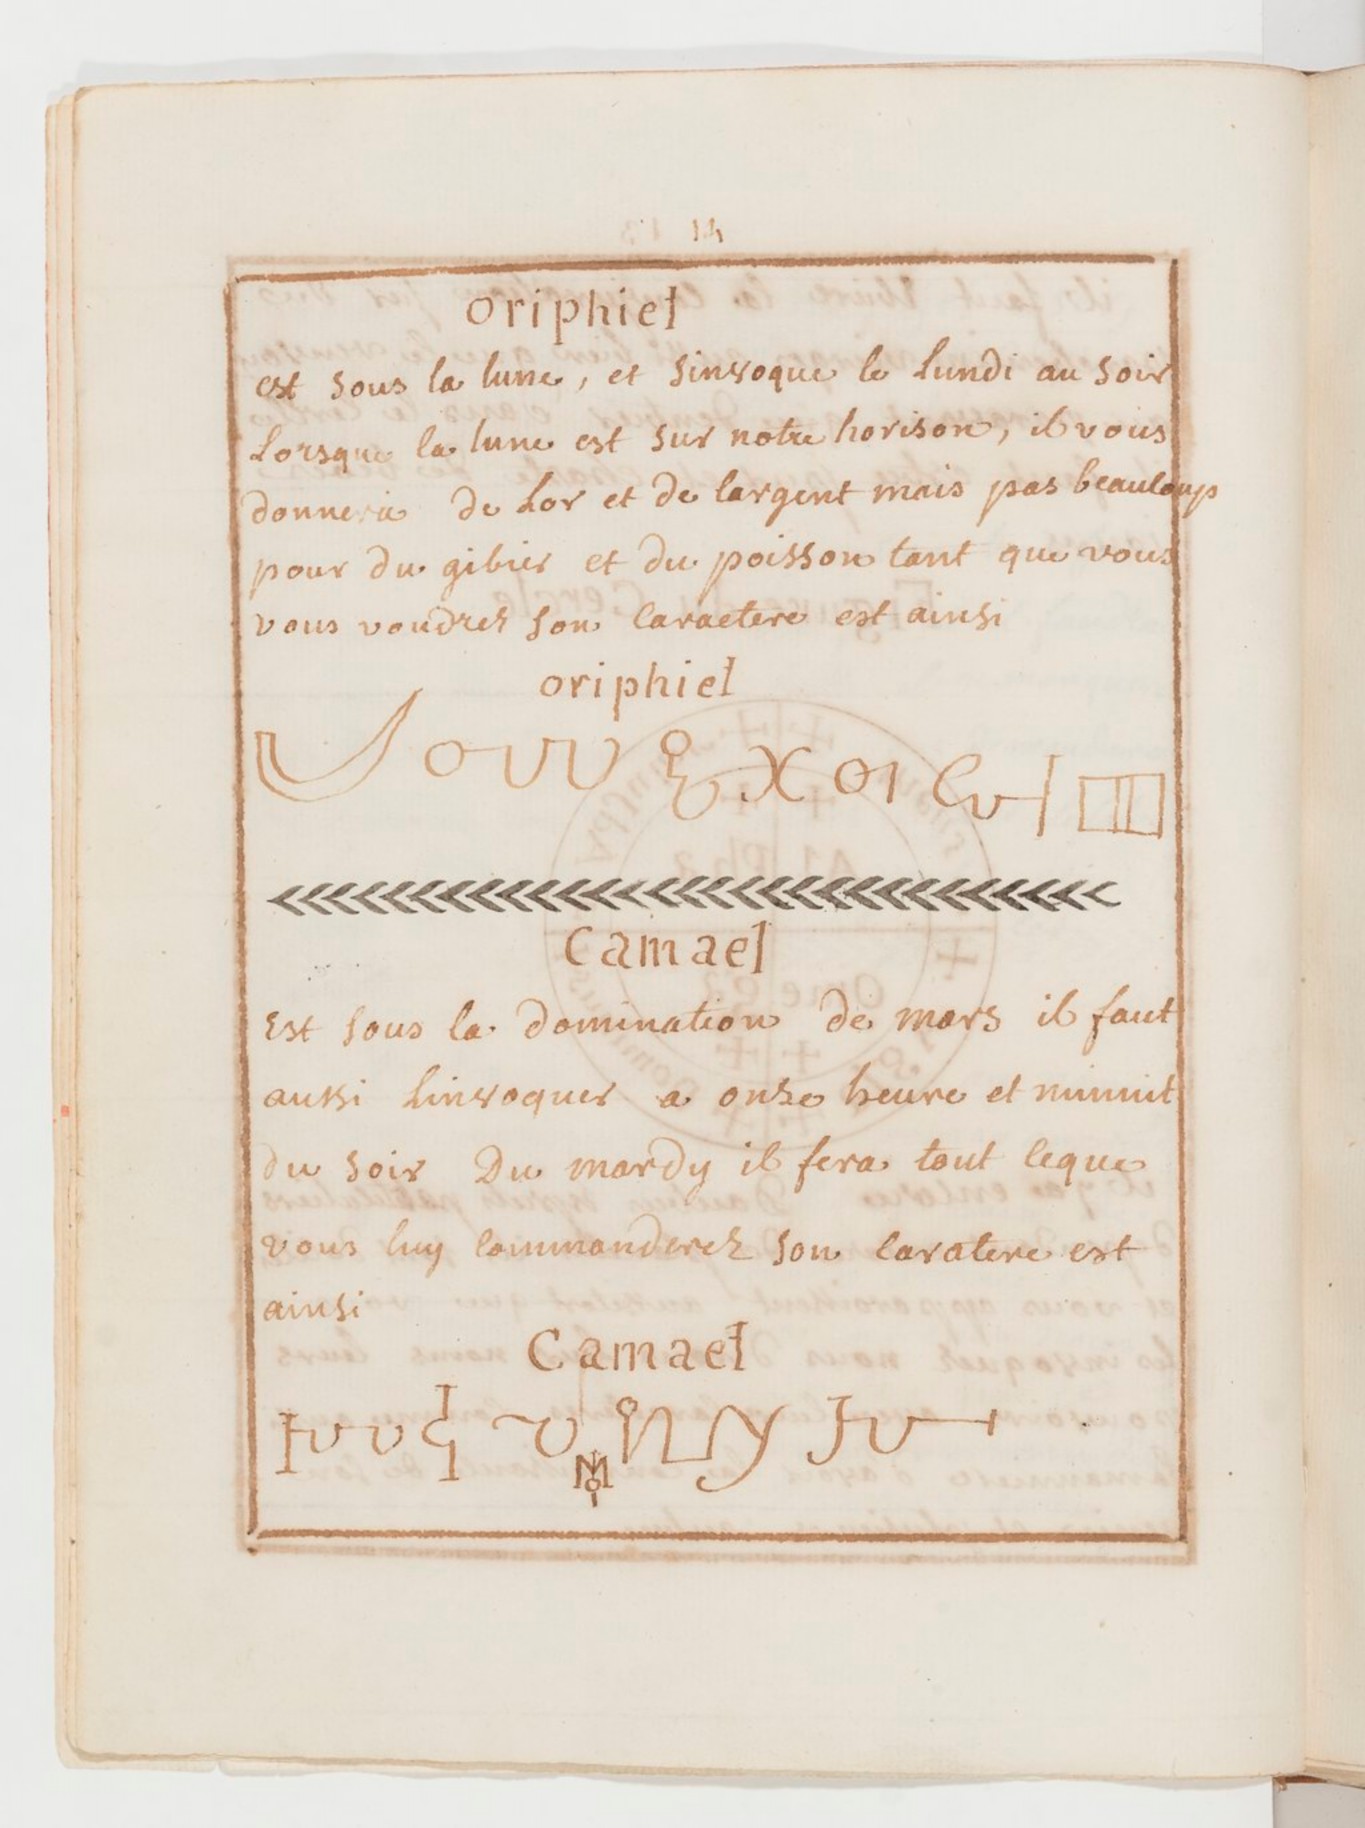 14
oriphiel
est sous la lune, et sinvoque le Lundi au soir
Lorsque la lune est sur notre horison, il vous
donnera de Lor et de largent mais pas beaucoup
pour du gibier et du poisson tant que vous
vous voudrez son caractere est ainsi
oriphiel
Camael
Est sous la domination de mars il faut
aussi Linvoquer a onze heure et minuit
du soir Du mardy il fera tout ceque
vous luy commanderez son caratere est
ainsi
Camael